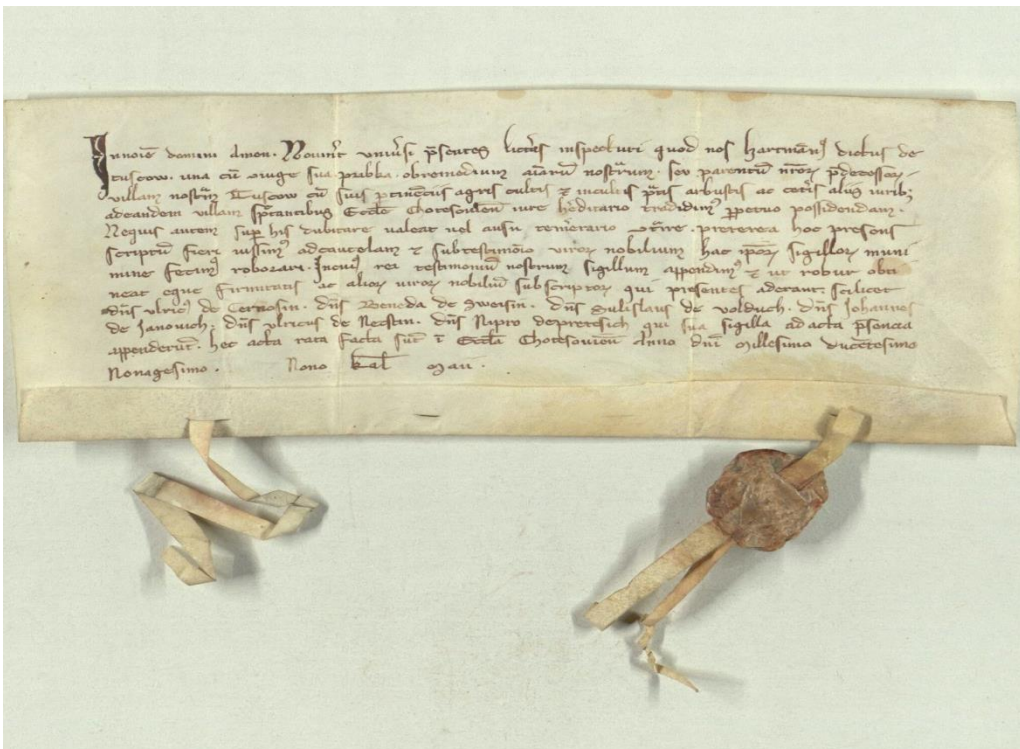 Innoiē domini Amen. Noverīt univsi p̄sentes litt̄as inspecturi quod nos Hartmān⁹ dictus de
tuscow. una cū coiuge sua p̄ibka. ob remediuꝫ aīarū nostraꝝ. seu parentū nr̄oꝝ p̄decessoꝝ.
villam nostrā Tuscow cū suis ꝑtinētiis agris cultis ⁊ incultis p̄tis arbustis ac cet̄is aliis iuribꝫ
ad eandem villam sp̄tantibus Eccl̄ie Chotesovien̄ iure h̄editario tradidim⁹ ꝑpetuo possidendam.
Nequis autem sup̄ his dubitare valeat vel ausu tem̄erario
scriptū fieri iussim⁹ ad cautelam ⁊ sub testimōio viroꝝ nobilium hac ip̄oꝝ sigilloꝝ muni
mine fecim⁹ roborari. In cui⁹ rei testimoniū nostrum sigillum appendim⁹ ⁊ ut robur obti
neat eque firmitatis ac alioꝝ viroꝝ nobiliū subscriptoꝝ qui presentes aderant. scilicet
dn̄s ulric⁹ de Cernosin. dn̄s Beneda de Zweisin. dn̄s Sulislaus de volduch. dn̄s Johannes
de Janovich. dn̄s ulricus de Necstin. dn̄s Nipro de pretesich qui sua sigilla ad acta p̄sencia
appenderūt. hec acta rata facta sūt ī Eccl̄ia Chotesovien̄ Anno dn̄i Millesimo ducētesimo
Nonagesimo. Nono kal̄ Maii.